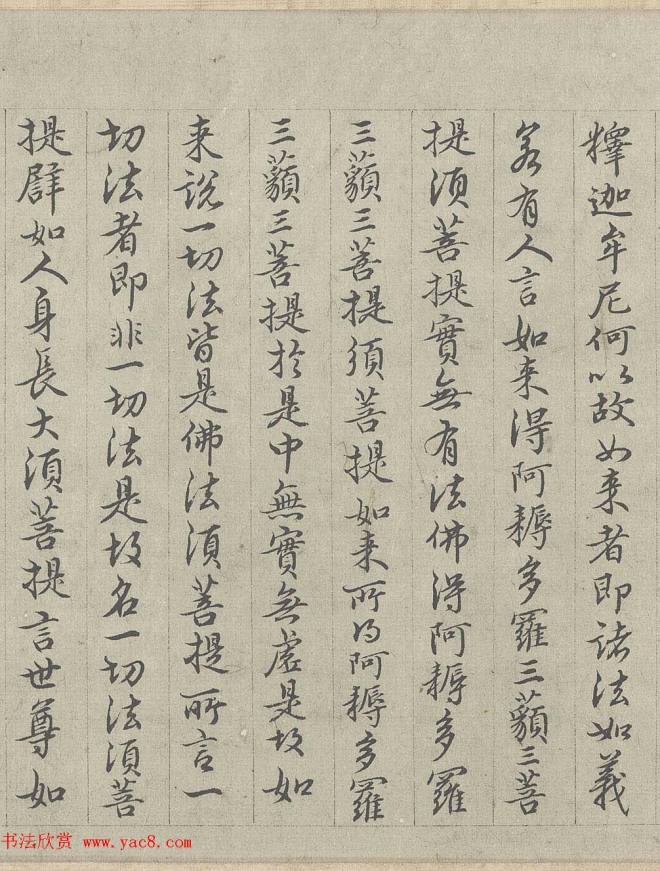 釋迦牟尼何以故如来者即諸法如義
若有人言如来得阿耨多羅三藐三菩
提須菩提實無有法佛得阿耨多羅
三藐三菩提須菩提如来所得阿耨多羅
三藐三菩提於是中無實無虛是故如
来說一切法皆是佛法須菩提所言一
切法者即非一切法是故名一切法須菩
提譬如人身長大須菩提言世尊如
书法欣赏 www.yac8.com